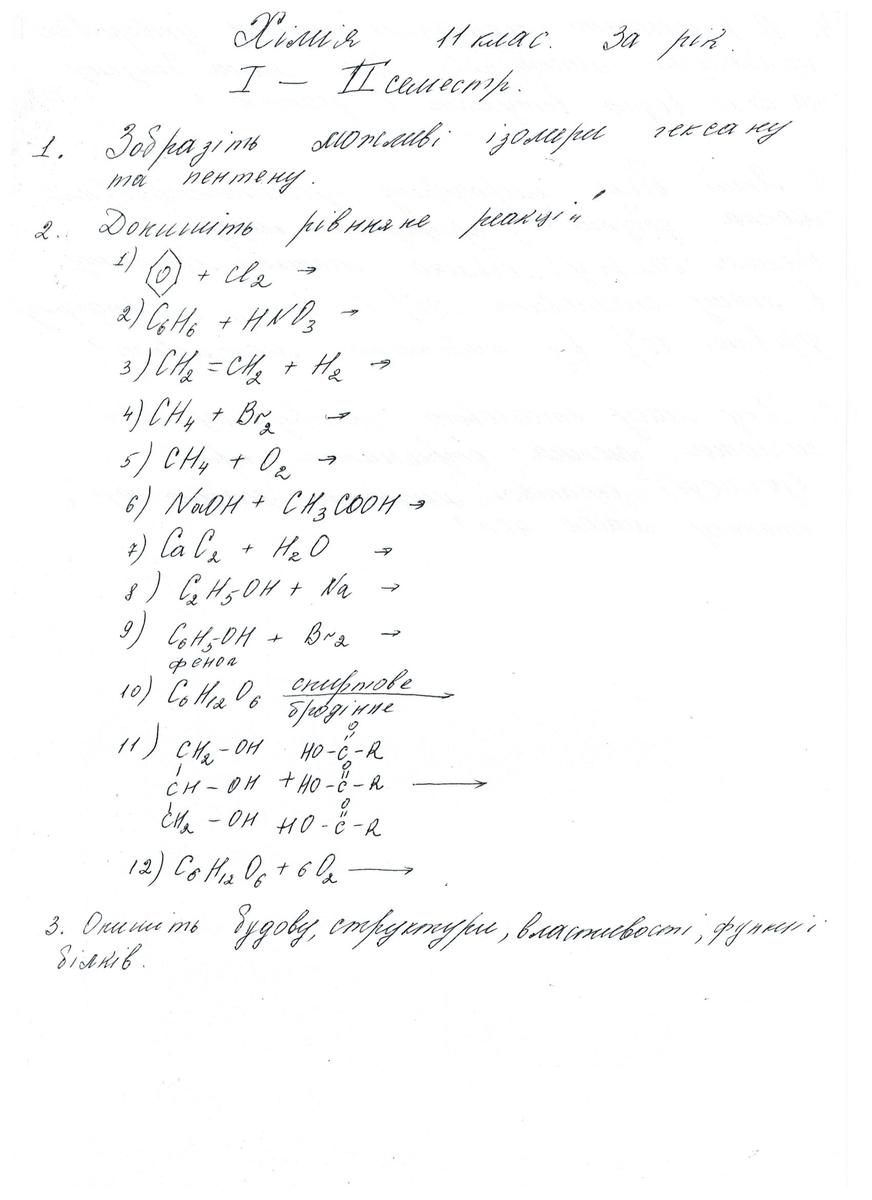 Хімія 11 клас. За рік.
I — II семестр.
1. Зобразіть можливі ізомери гексану
та пентену.
2. Допишіть рівняне реакцій
1) + Cl2 →
2) C6H6 + HNO3 →
3) CH2 = CH2 + H2 →
4) CH4 + Br2 →
5) CH4 + O2 →
6) NaOH + CH3COOH →
7) CaC2 + H2O →
8) C2H5OH + Na →
9) C6H5OH + Br2 →
фенол
10) C6H12O6 спиртове →
бродінне
11) CH2 – OH HO – C – R
CH – OH + HO – C – R →
CH2 – OH HO – C – R
12) C6H12O6 + 6O2 →
3. Опишіть будову, структури, властивості, функції
білків.